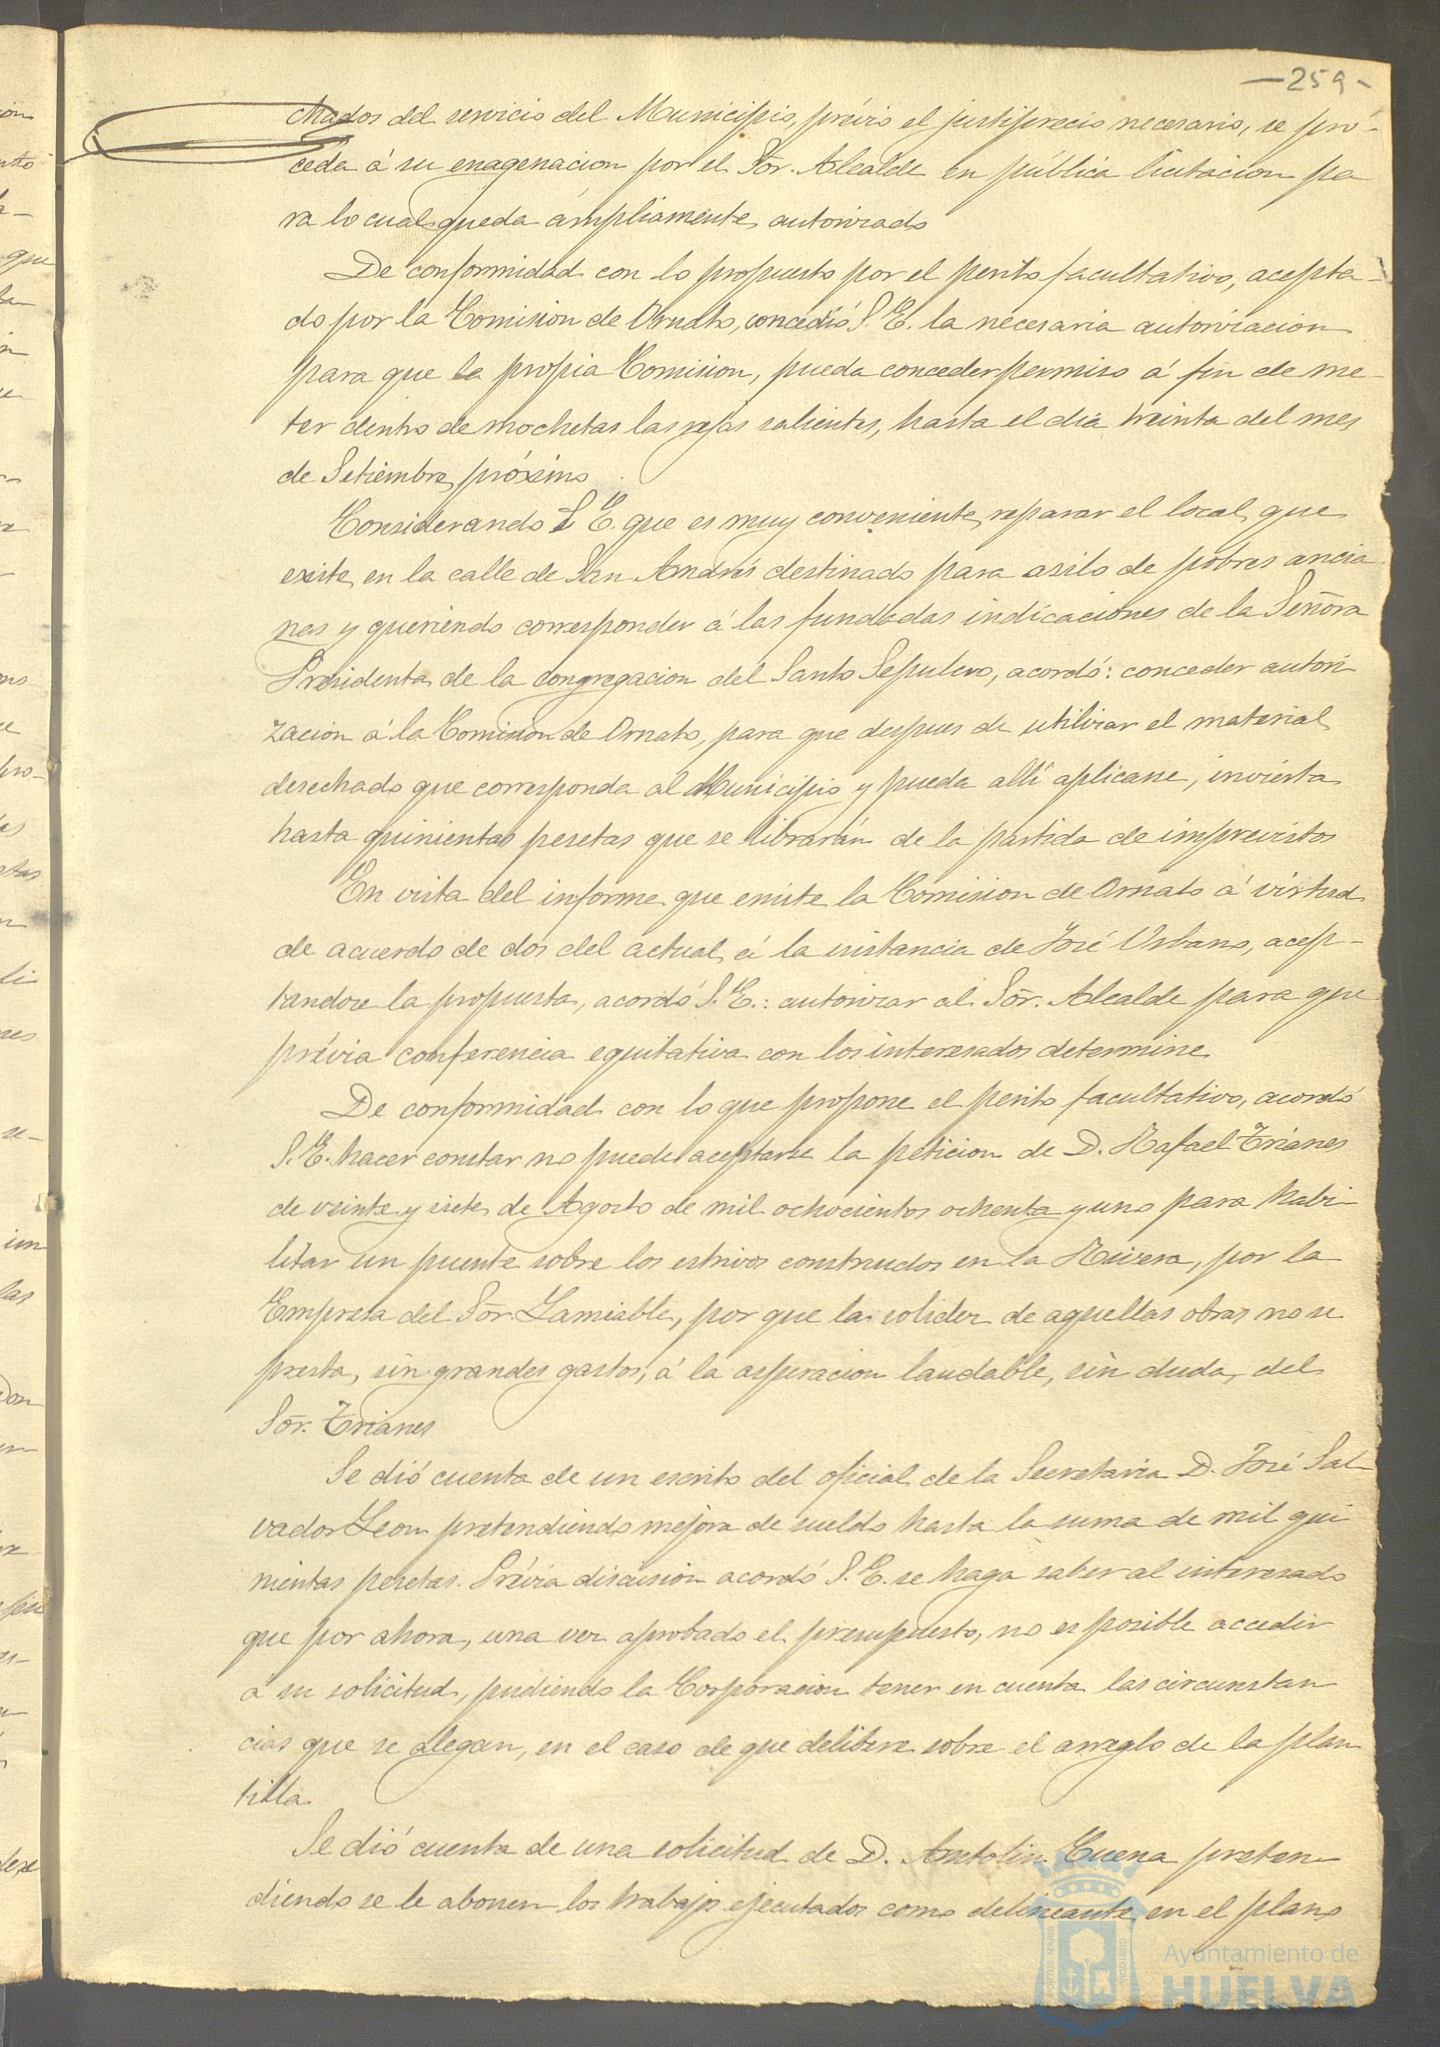 —259-
chados del servicio del Municipio, prévio el justiprecio necesario, se pro-
ceda á su enagenacion por el Sor. Alcalde en pública licitacion pa
ra lo cual queda ámpliamente autorizado
De conformidad con lo propuesto por el perito facultativo, acepta-
do por la Comision de Ornato, concedió S. E. la necesaria autorizacion
para que la propia Comision, pueda conceder permiso á fin de me-
ter dentro de mochetas las rejas salientes, hasta el dia treinta del mes
de Setiembre próximo
Considerando S. E. que es muy conveniente reparar el local que
existe en la calle de San Andrés destinado para asilo de pobres ancia
nas y queriendo corresponder á las fundadas indicaciones de la Señora
Presidenta de la congregacion del Santo Sepulcro, acordó: conceder autori
zacion á la Comision de Ornato, para que despues de utilizar el material
desechado que corresponda al Municipio y pueda allí aplicarse, invierta
hasta quinientas pesetas que se librarán de la partida de imprevistos
En vista del informe que emite la Comision de Ornato á virtud
de acuerdo de dos del actual, á la instancia de José Urbano, acep-
tandose la propuesta, acordó S. E.: autorizar al Sor. Alcalde para que
prévia conferencia equitativa con los interesados determine
De conformidad con lo que propone el perito facultativo, acordó
S. E. hacer constar no puede aceptarse la peticion de D. Rafael Trianes
de veinte y siete de Agosto de mil ochocientos ochenta y uno para habi-
litar un puente sobre los estrivos construidos en la Rivera, por la
Empresa del Sor. Lamiable, por que la solidez de aquellas obras no se
presta, sin grandes gastos, á la aspiracion laudable, sin duda, del
Sor. Trianes
Se dió cuenta de un escrito del oficial de la Secretaria D. José Sal
vador Leon pretendiendo mejora de sueldo hasta la suma de mil qui
nientas pesetas. Prévia discusion acordó S. E. se haga saber al interesado
que por ahora, una vez aprobado el presupuesto, no es posible acceder
á su solicitud, pudiendo la Corporacion tener en cuenta las circunstan
cias que se alegan, en el caso de que delibere sobre el arreglo de la plan
tilla.
Se dió cuenta de una solicitud de D. Antolin Cuena preten
diendo se le abonen los trabajos ejecutados como delineante en el plano
Ayuntamiento de
HUELVA